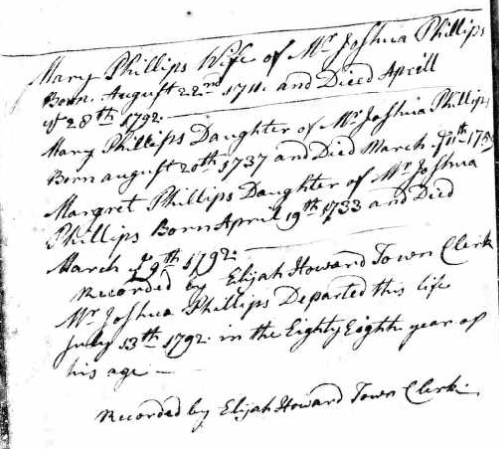 Mary Phillips Wife of Mr Joshua Phillips
Born August 22nd 1711. and Died Aprill
ye 28th 1792.
Mary Phillips Daughter of Mr Joshua Phillips
Born august 20th 1737 and Died March ye 11th
Margret Phillips Daughter of Mr Joshua
Phillips Born April 19th 1733 and Died
March ye 9th 1792.
Recorded by Elijah Howard Town Clerk
Mr Joshua Phillips Departed this life
July 13th 1792. in the Eighty Eighth year of
his age —
Recorded by Elijah Howard Town Clerk.